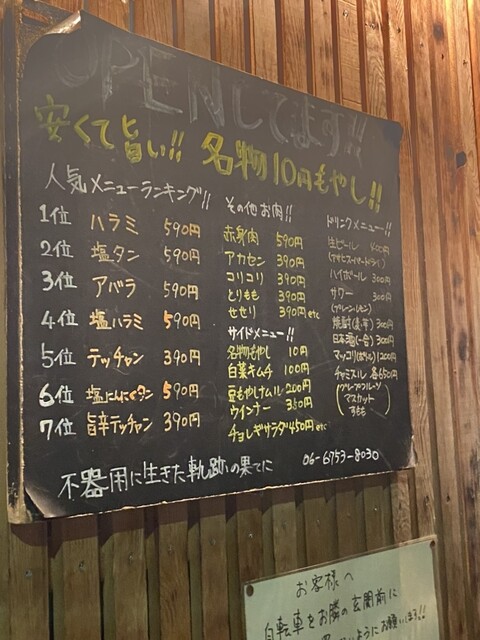 OPENしてます!!
安くて旨い!! 名物10円もやし!!
人気メニューランキング!!
1位 ハラミ 590円
2位 塩タン 590円
3位 アバラ 590円
4位 塩ハラミ 590円
5位 テッチャン 390円
6位 塩にんにくタン 590円
7位 旨辛テッチャン 390円
その他お肉!!
赤身肉 590円
アカセン 390円
コリコリ 390円
とりもも 390円
せせり 390円etc
サイドメニュー!!
名物もやし 10円
白菜キムチ 100円
豆もやしナムル 200円
ウインナー 350円
チョレギサラダ 450円etc
ドリンクメニュー!!
生ビール 400円
(アサヒスーパードライ)
ハイボール 300円
サワー 300円
(プレーン・レモン)
焼酎(麦・芋) 300円
日本酒(一合) 300円
マッコリ(ボトル) 1200円
チャミスル 各650円
(グレープフルーツ
マスカット
すもも)
不器用に生きた軌跡の果てに
06-6753-8030
お客様へ
自転車をお隣の玄関前に
ないようにお願いします!!